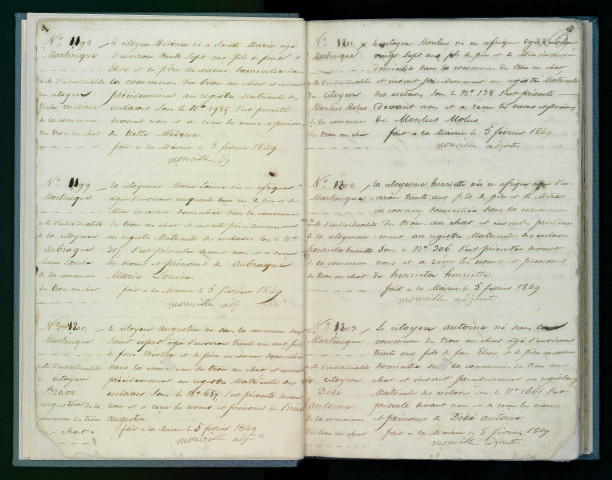 No 1198
Martinique
acte d'individualité
du citoyen
de la commune
du trou au chat
le citoyen Médérie né à Sainte Marie agé
d'environ trente Sept ans fils de
et de père inconnu domicilié dans
la commune du trou au chat et inscrit
précédemment au registre Matricule des
esclaves Sous le No 1989 S'est présenté
devant nous et a reçu les noms et prénoms
de
fait à la Mairie le 5 février 1849
mouville adj
No 1199
Martinique
acte d'individualité
de la citoyenne
Aubraque
Marie Louise
de la commune
du trou au chat
la citoyenne Marie Louise née en afrique
agée d'environ cinquante deux ans de père et de
Mère inconnus domiciliée dans la commune
du trou au chat et inscrite précédemment
au registre Matricule des esclaves Sous le No
S'est présentée devant nous et a reçu
les noms et prénoms de Aubraque
Marie Louise
fait à la Mairie le 5 février 1849
mouville adj
No 1200
Martinique
acte d'individualité
du citoyen
Bravo
augustin de la
commune du trou
au chat
le citoyen Augustin né dans la commune du
Saint esprit agé d'environ trente un ans fils
de feue et de père inconnu domicilié
dans la commune du trou au chat et inscrit
précédemment au registre Matricule des
esclaves Sous le No S'est présenté devant
nous et a reçu les noms et prénoms de Bravo
Augustin
fait à la Mairie le 5 février 1849
mouville adj
No 1201
Martinique
acte d'individualité
du citoyen
Montus Molus
de la commune
du trou au chat
le citoyen Montus né en afrique agé d'environ
vingt Sept ans fils de père et de Mère inconnus
domicilié dans la commune du trou au chat
et inscrit précédemment au registre Matricule
des esclaves Sous le No 138 S'est présenté
Devant nous et a reçu les noms et prénoms
de Montus Molus
fait à la Mairie le 5 février 1849
mouville adjoint
No 1202
Martinique
acte d'individualité
de la citoyenne
henriette
de la commune
du trou au chat
la citoyenne henriette née en afrique agée d'en-
viron trente ans fille de père et de Mère
inconnus domiciliée dans la commune
du trou au chat et inscrite précédem-
ment au registre Matricule des esclaves
Sous le No 306 S'est présentée devant
nous et a reçu les noms et prénoms
de henriette
fait à la Mairie le 5 février 1849
mouville adjoint
No 1203
Martinique
acte d'individualité
du citoyen
Dédé
antoine
de la commune
du trou au chat
Le citoyen antoine né dans la
commune du trou au chat agé d'environ
trente ans fils de feue et de père inconnu
domicilié dans la commune du trou au
chat et inscrit précédemment au registre
Matricule des esclaves Sous le No 1661 S'est
présenté devant nous et a reçu les noms
et prénoms de Dédé antoine
fait à la Mairie le 5 février 1849
mouville adjoint